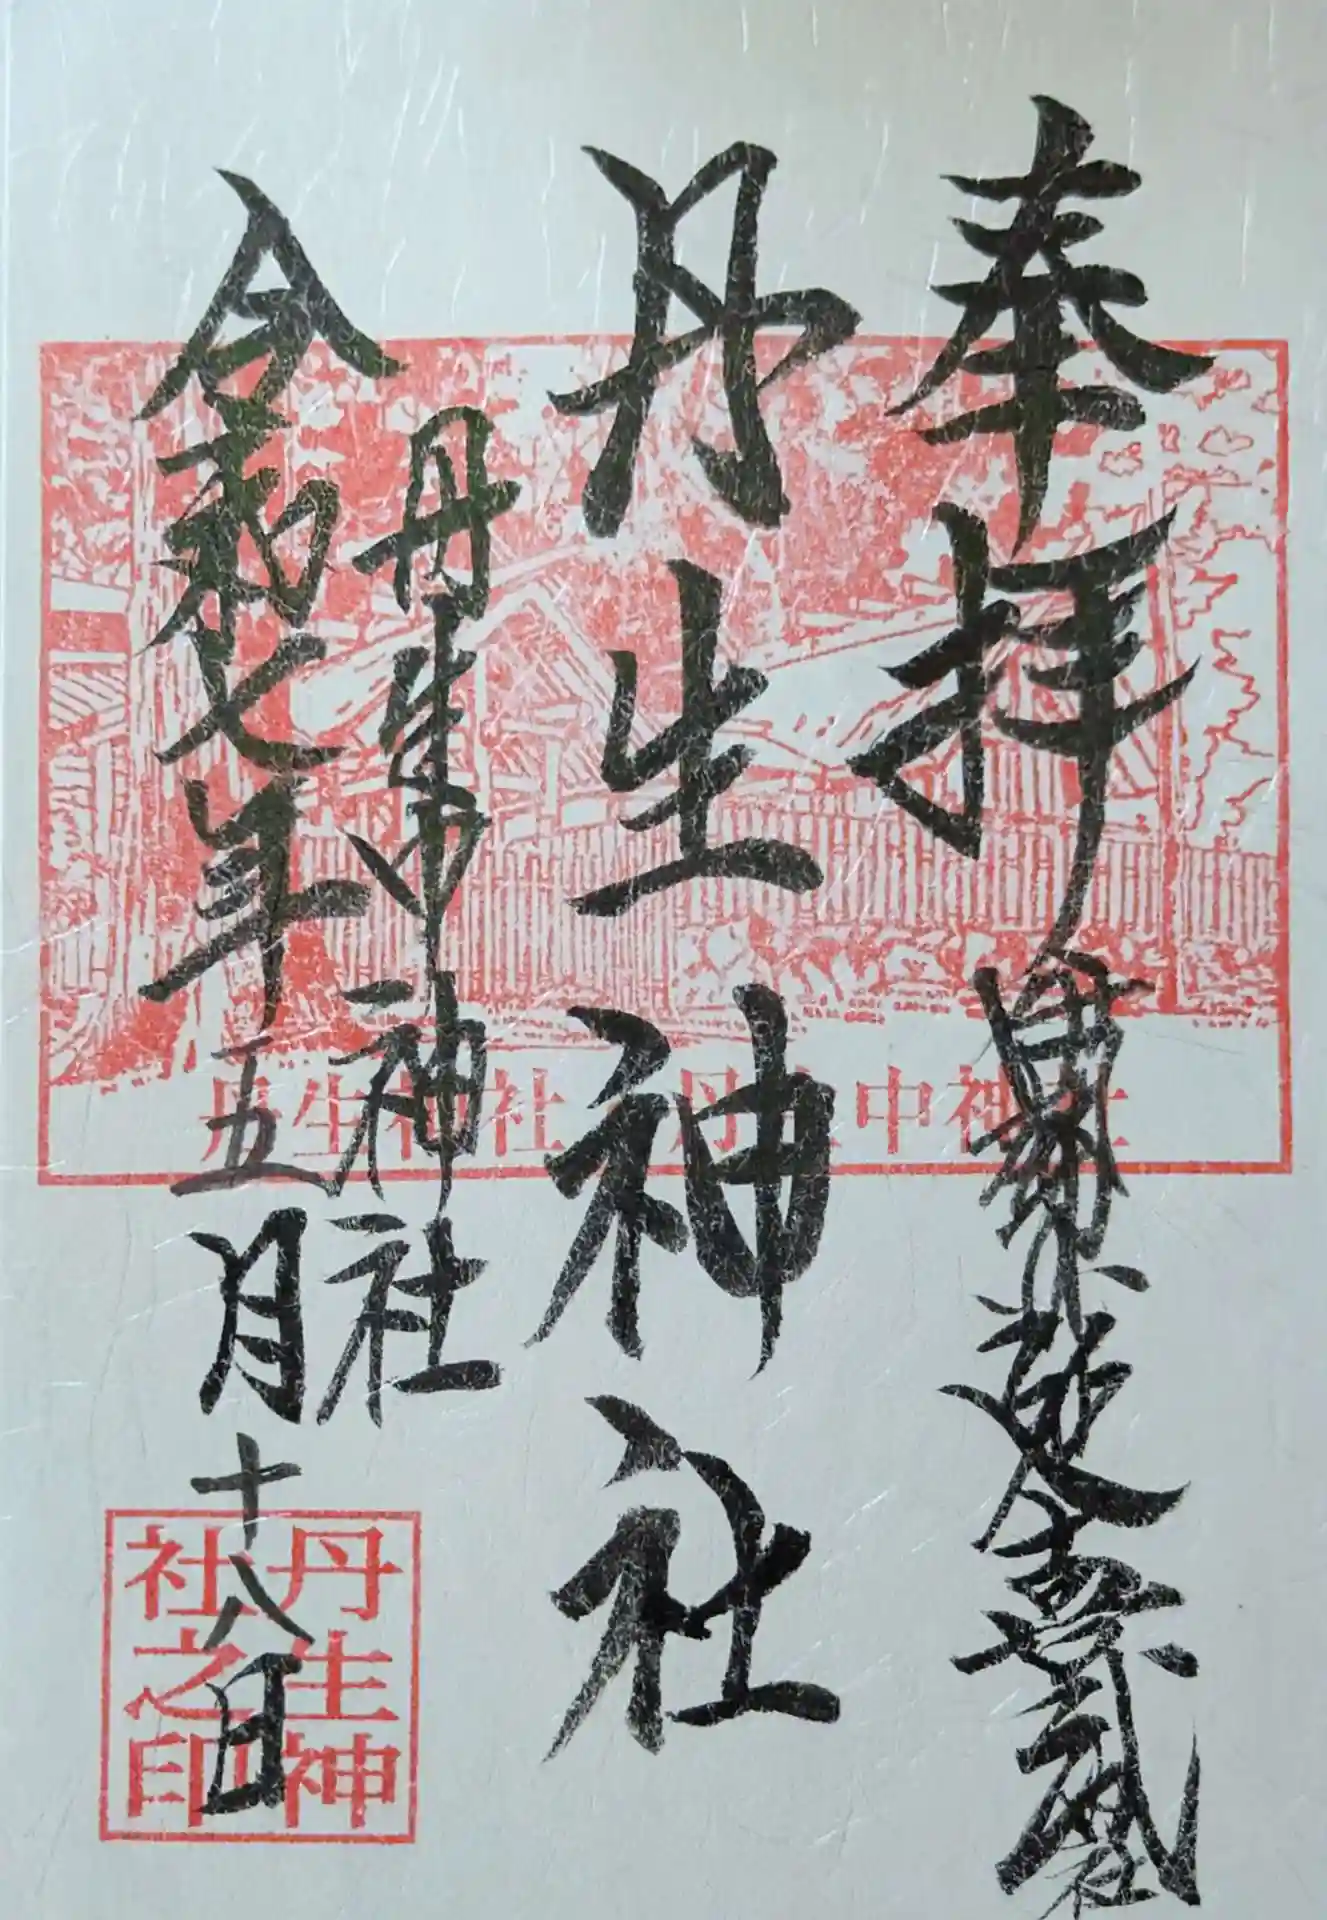 奉拝
延喜式内社
丹生神社
丹生中神社
令和七年五月十八日
丹生神社・丹生中神社
丹生神
社之印